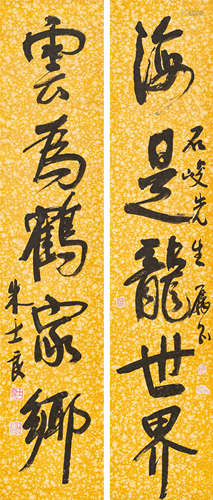 海是龍世界
石峻先生屬家
雲為鶴家鄉
朱士良